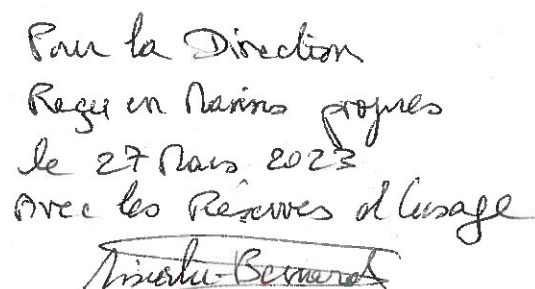 Pour la Direction
Reçu en Mains propres
le 27 Mars 2023
Avec les Réserves d'usage
Bernard